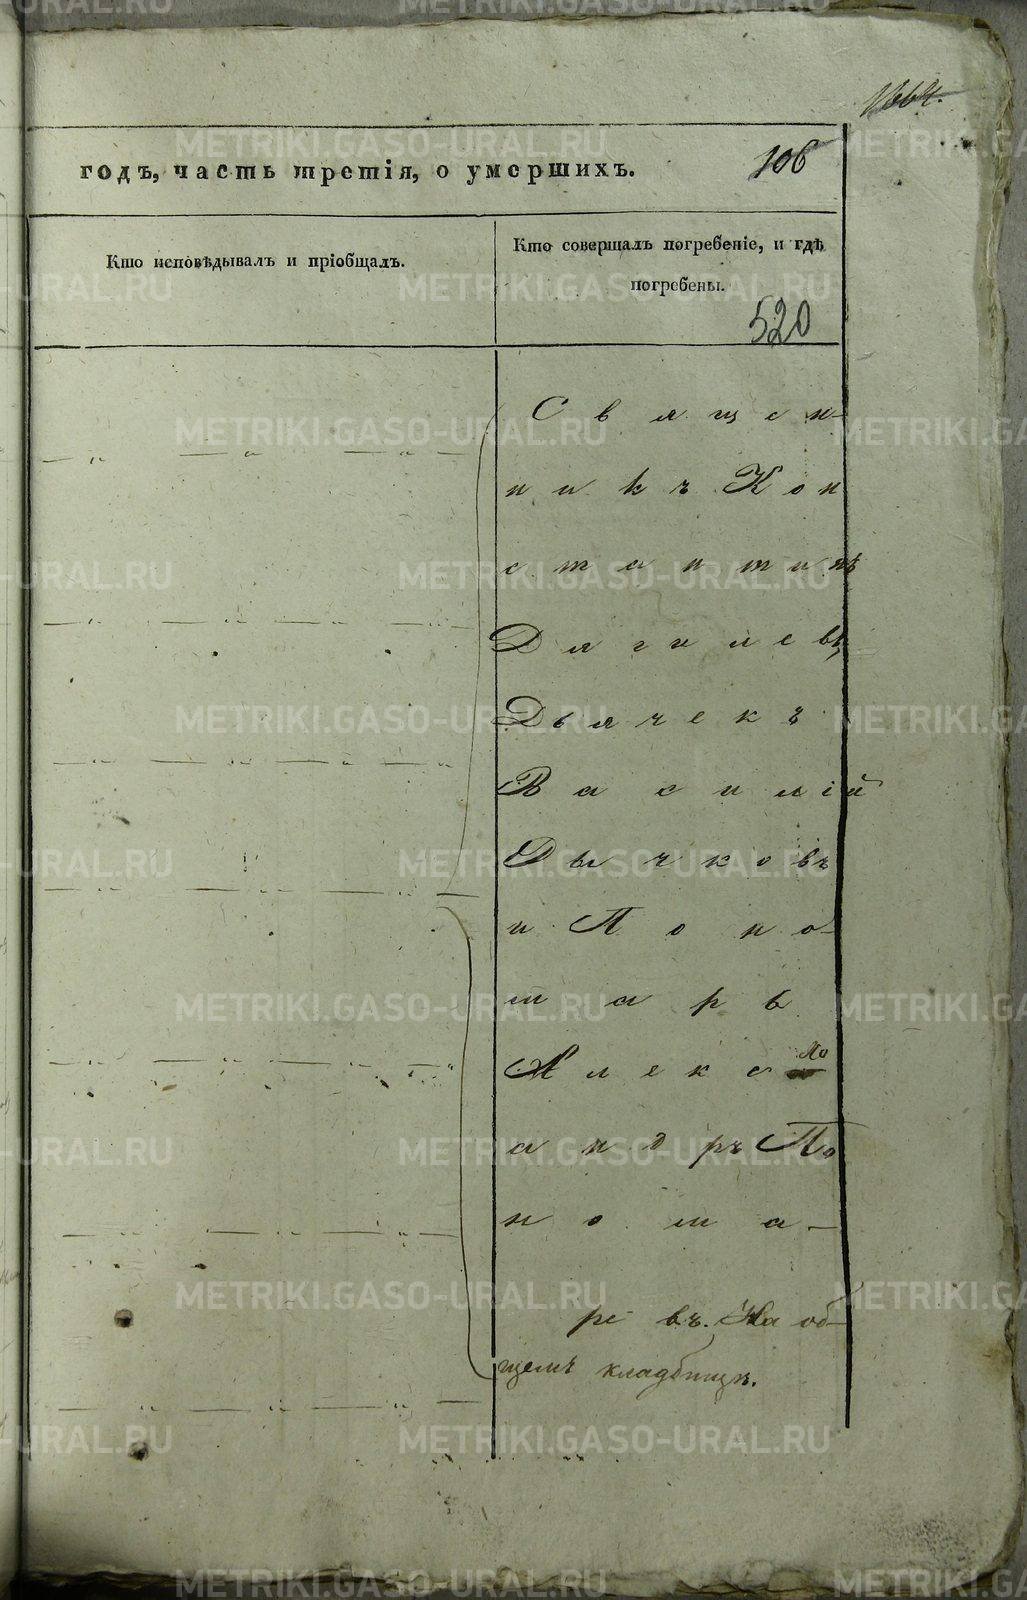 1664.
годъ, часть третія, о умершихъ.
106
Кто исповѣдывалъ и пріобщалъ.
Кто совершалъ погребеніе, и гдѣ
погребены.
520
Священ-
никъ Кон
стантинъ
Дягилевъ,
Дьячекъ
Василій
Дьячковъ
и Поно-
марь
Алекс
андръ По
нома-
ревъ. На об-
щемъ кладбищѣ.
METRIKI.GASO-URAL.RU